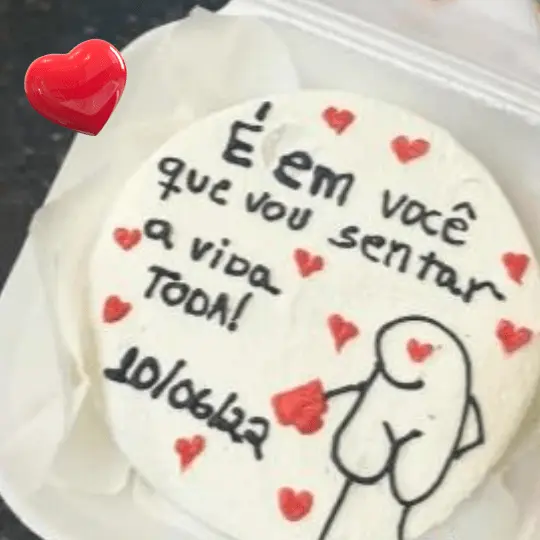 É em você
que vou sentar
a vida
TODA!
10/06/22